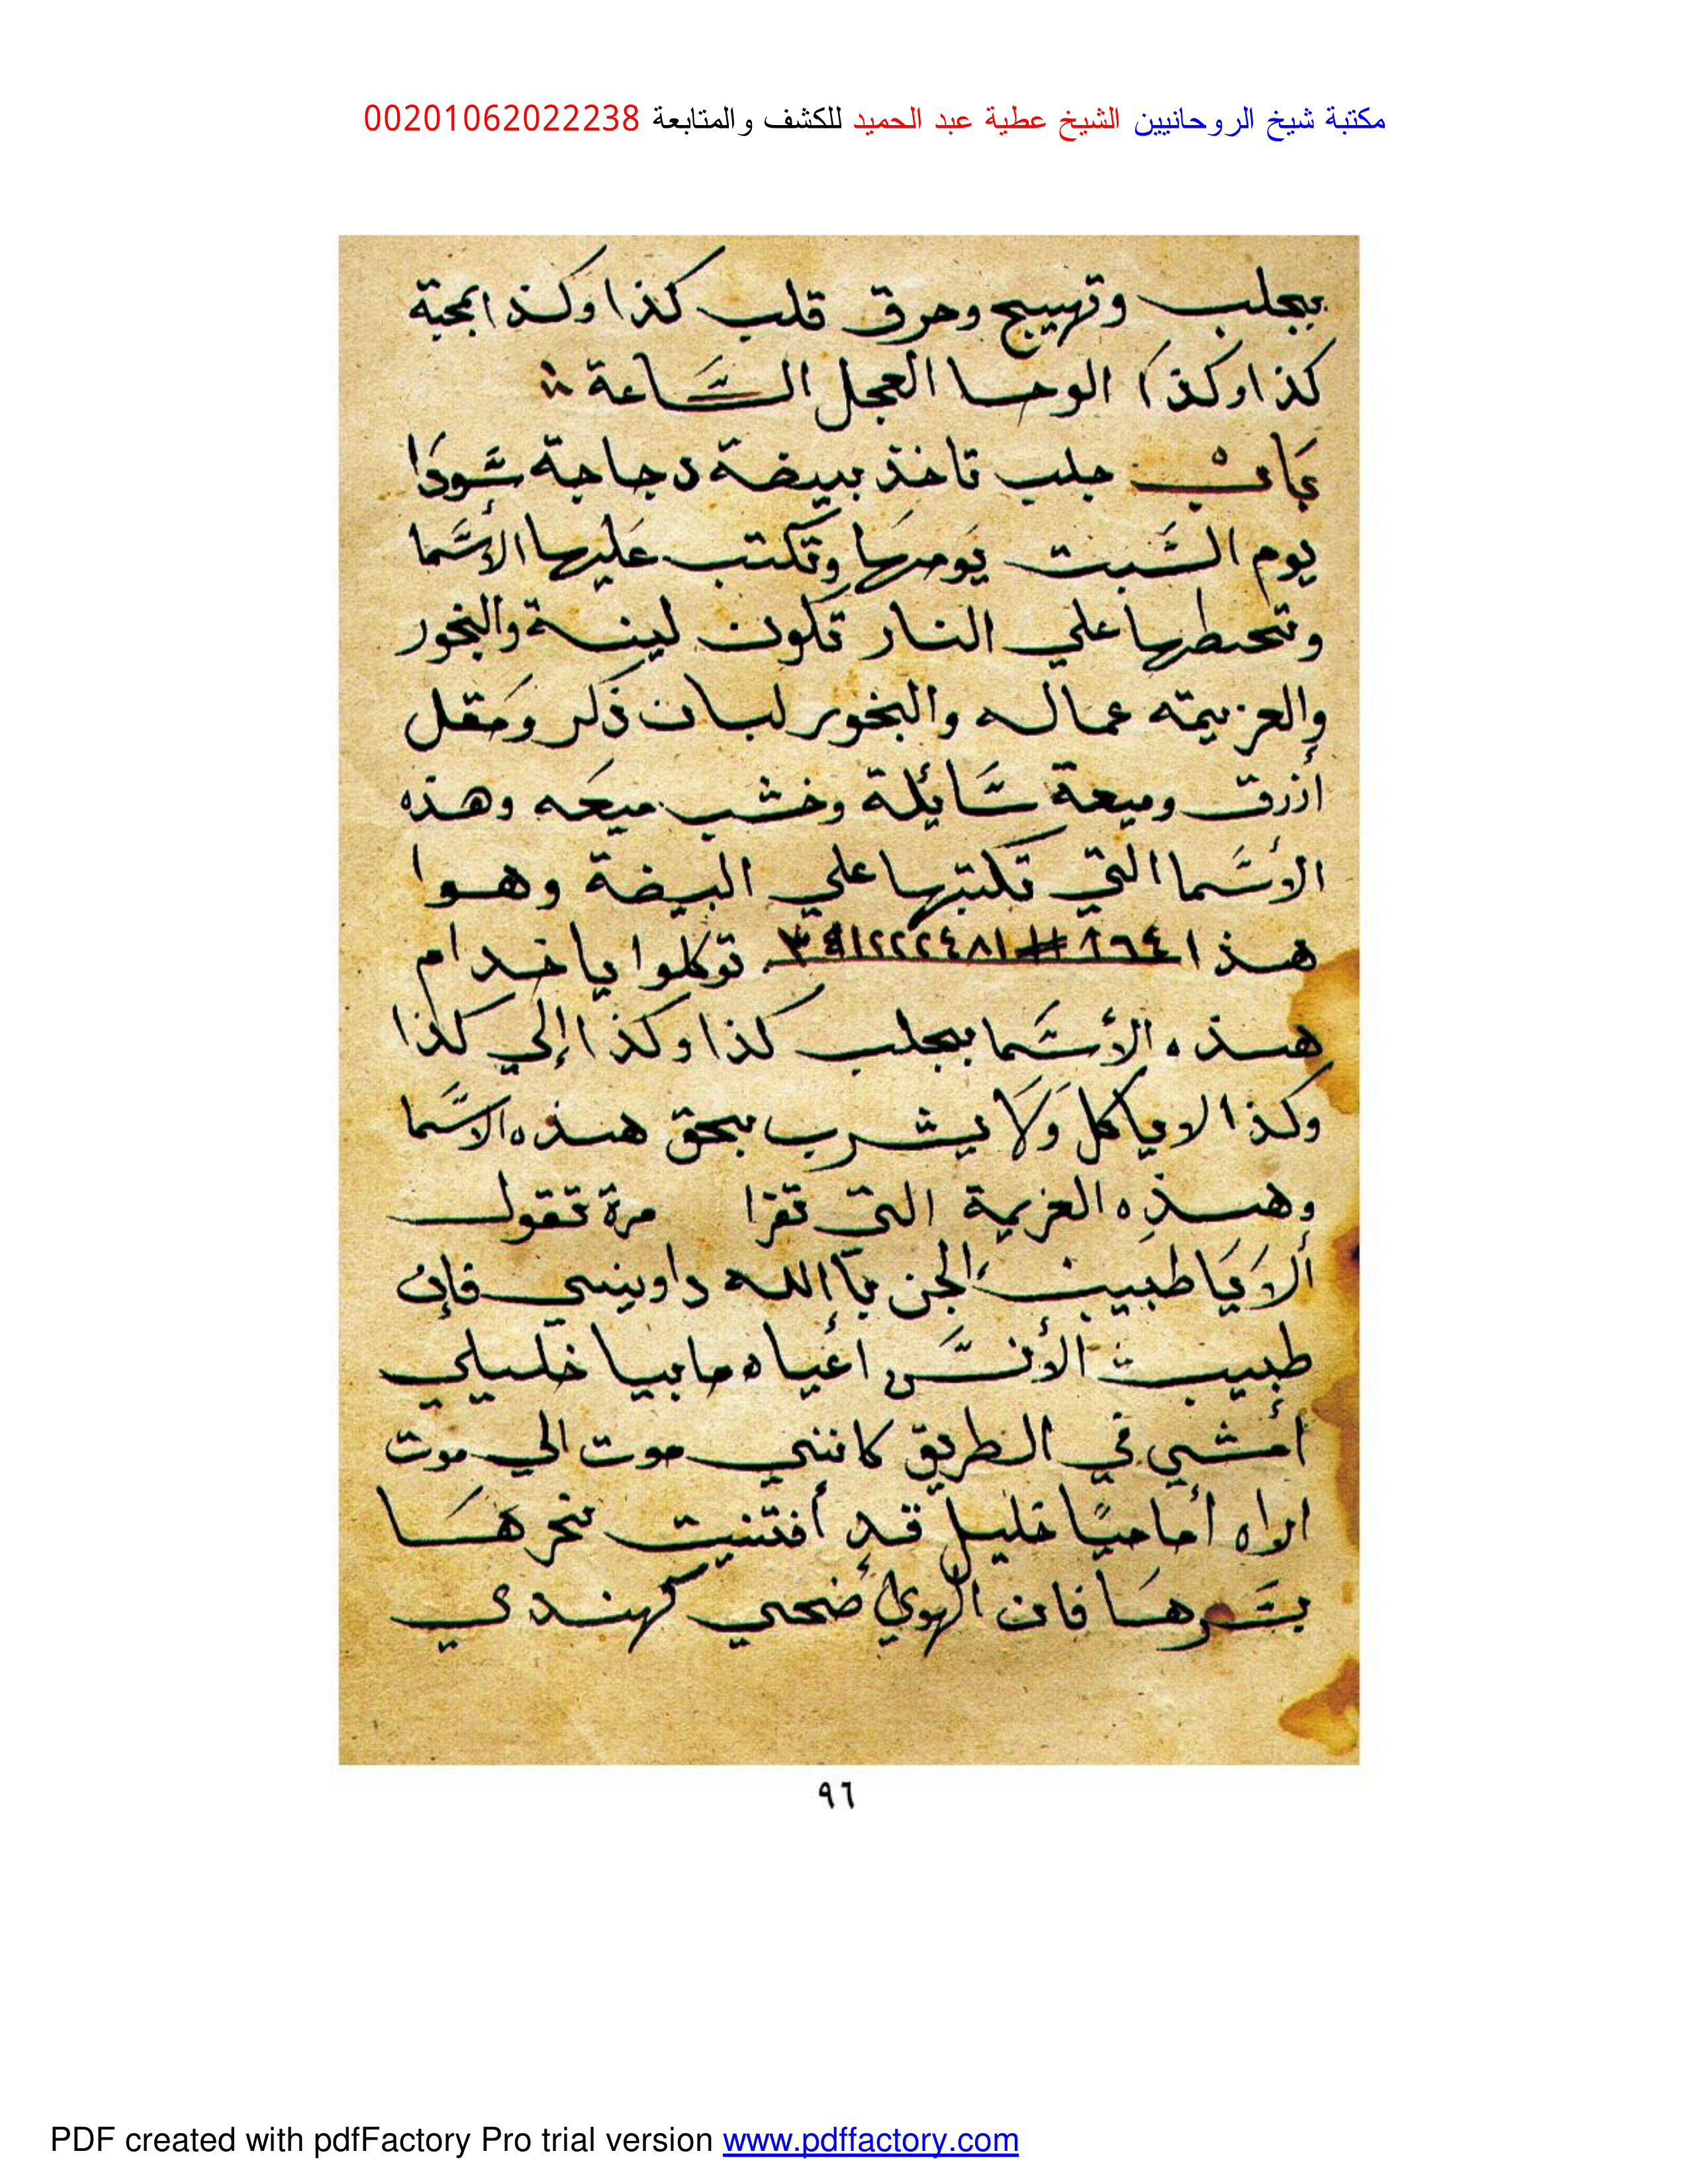 مكتبة شيخ الروحانيين الشيخ عطية عبد الحميد للكشف والمتابعة 00201062022238
بجلب وتهييج وحرق قلب كذا وكذا بمحبة
كذا وكذا الوحا العجل السَّاعة
جلب تاخذ بيضة دجاجة سَّودَا
يوم السَّبت يَومهَا وتكتب عَليها الأسَّما
وتحطها علي النار تكون لينة والبخور
والعزيمة عماله والبخور لبان ذكر ومَقل
أزرق وميعة سَّائلة وخشب ميعَه وهذه
الأسَّما التي تكتبها علي البيضة وهوا
هذا توكلوا يا خدام
هذه الأسَّما بجلب كذا وكذا إلي كذا
وكذا لا ياكل وَلَا يشرب بحق هذه الاسَّما
وهذِه العزيمة التي تقرا مرة تقول
ألا يَا طبيب الجن يا الله داويني فإن
طبيب الأنسَّ أعياه ما بيا خليلي
أمشي في الطريق كانني موت الي موت
اراه أماميًا خليل قد أفتنيت نحرهَا
بسَّرهَا فان الهوي أضحي كهندي
٩٦
PDF created with pdfFactory Pro trial version www.pdffactory.com